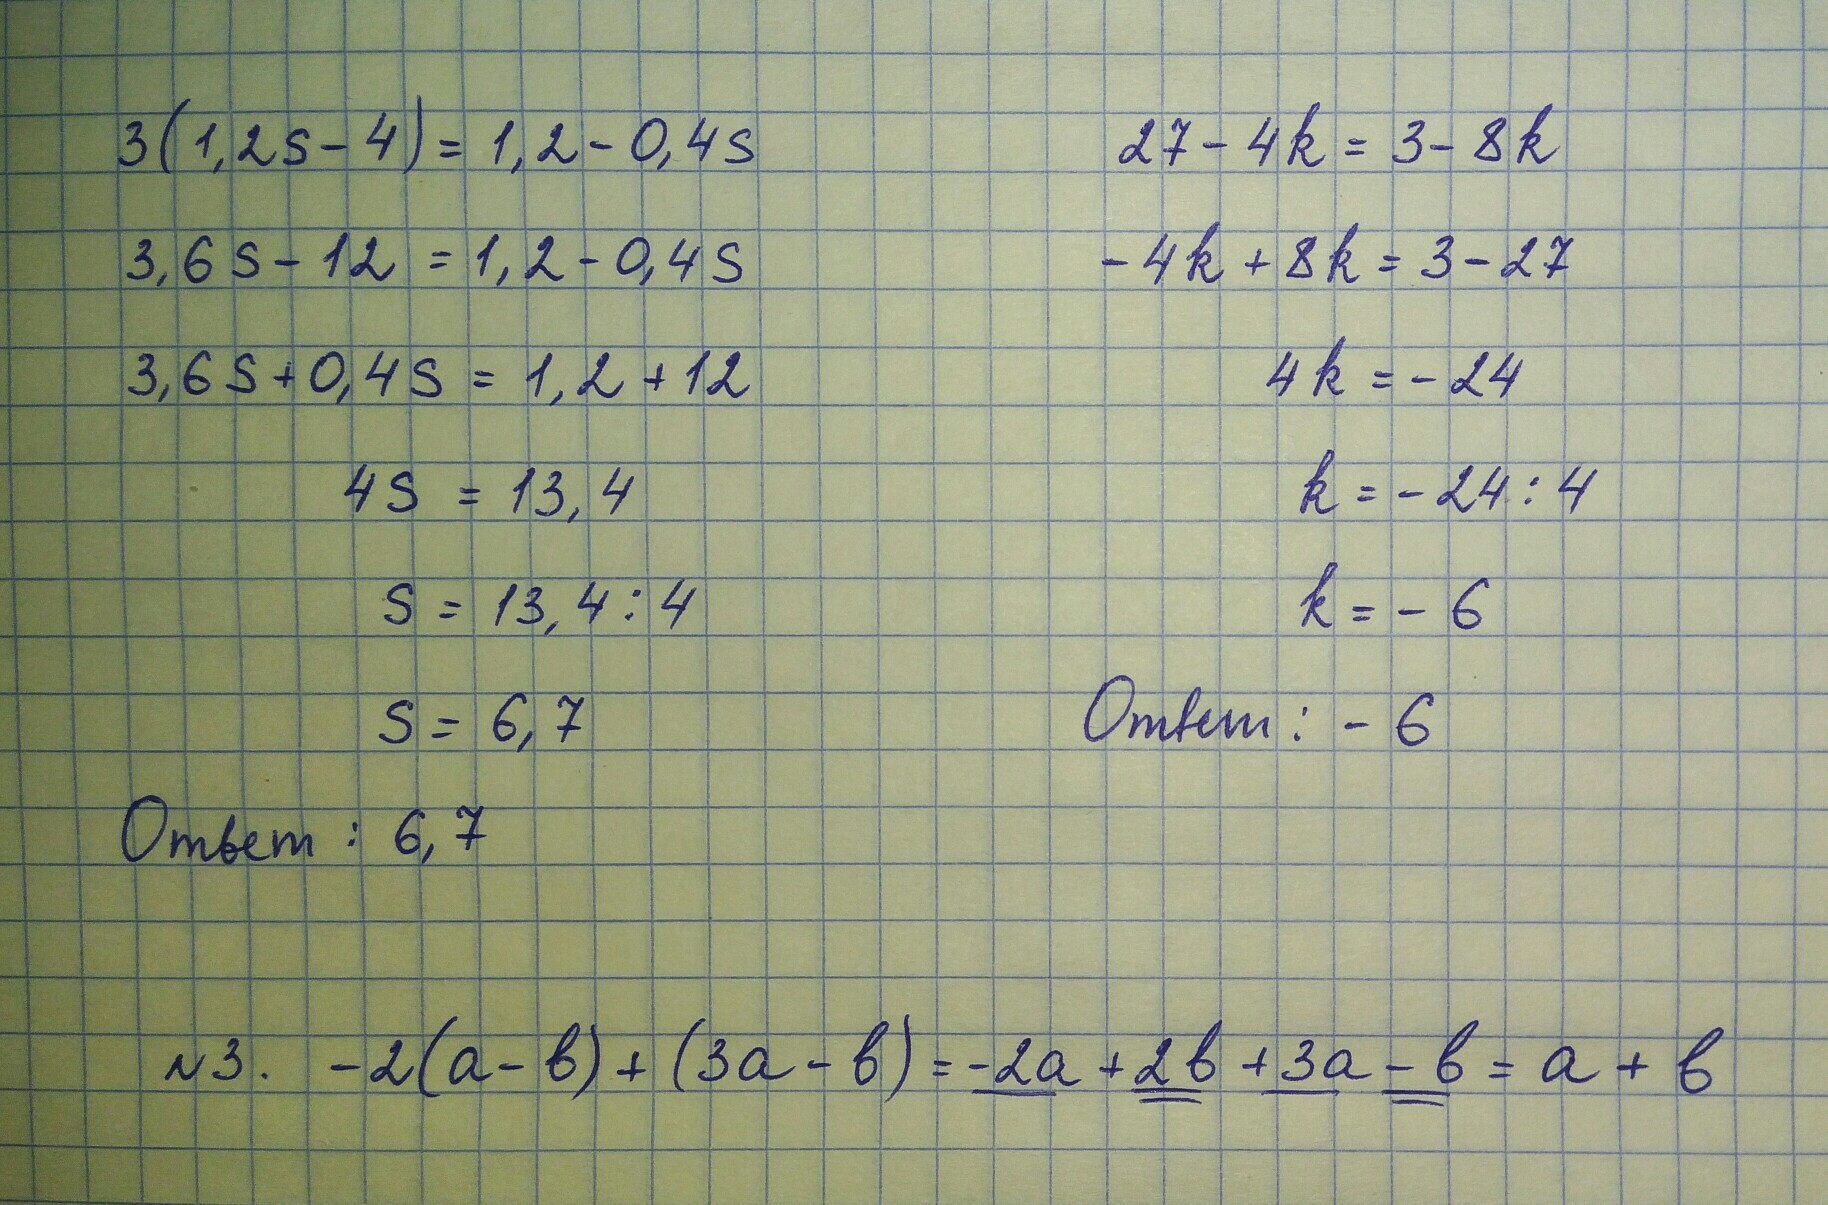 3(1,2s-4)=1,2-0,4s
3,6s-12=1,2-0,4s
3,6s+0,4s=1,2+12
4s=13,4
s=13,4:4
s=6,7
Ответ: 6,7
27-4k=3-8k
-4k+8k=3-27
4k=-24
k=-24:4
k=-6
Ответ: -6
№3. -2(a-b)+(3a-b)=-2a+2b+3a-b=a+b